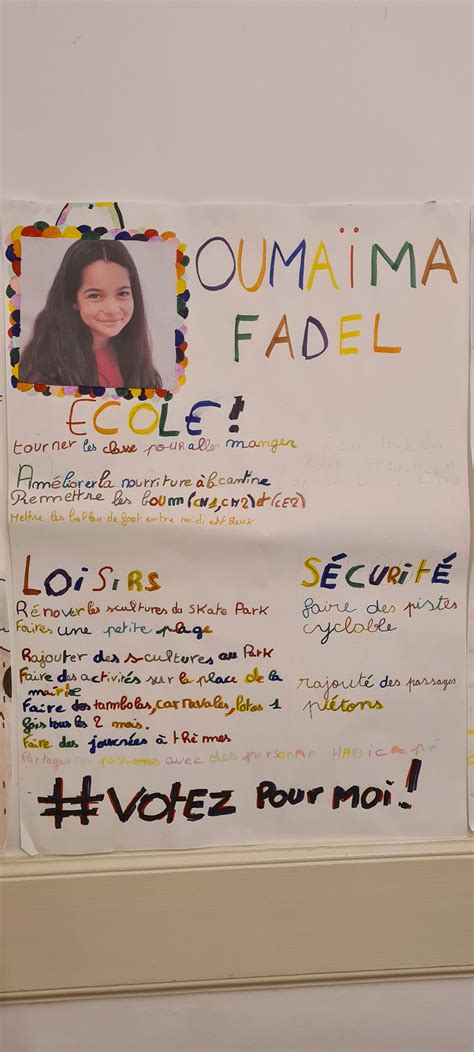 OUMAÏMA
FADEL
ECOLE!
tourner les classe pour aller manger
Améliorer la nourriture à la cantine
Remettre les boum (CM1, CM2) et (CE2)
Mettre les ballon de foot entre midi est deux.
LOISIRS
Rénover les scultures du Skate Park
Faires une petite plage
Rajouter des scultures au Park
Faire des activités sur la place de la
mairie
Faire des tambolas, carnavales, lotos 1
fois tous les 2 mois.
Faire des journées à thèmes
Partager nos passions avec des personne HADICAPÉ
SÉCURITÉ
faire des pistes
cyclable
rajouté des passages
piétons
#VOTEZ POUR MOI!